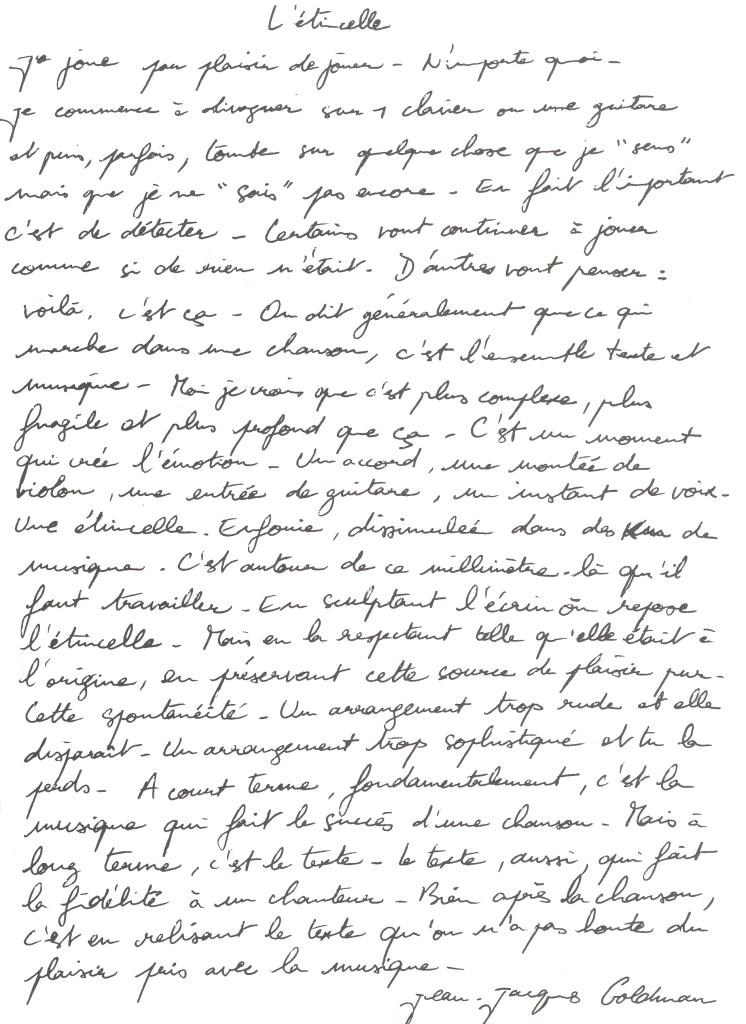 L'étincelle
Je joue par plaisir de jouer - N'importe quoi -
Je commence à divaguer sur 1 clavier ou une guitare
et puis, parfois, tombe sur quelque chose que je "sens"
mais que je ne "sais" pas encore - En fait l'important
c'est de détecter - Certains vont continuer à jouer
comme si de rien n'était. D'autres vont penser :
voilà, c'est ça - On dit généralement que ce qui
marche dans une chanson, c'est l'ensemble texte et
musique - Moi je crois que c'est plus complexe, plus
fragile et plus profond que ça - C'est un moment
qui crée l'émotion - Un accord, une montée de
violon, une entrée de guitare, un instant de voix -
Une étincelle. Enfouie, dissimulée dans des de
musique. C'est autour de ce millimètre-là qu'il
faut travailler - En sculptant l'écrin où repose
l'étincelle - Mais en la respectant telle qu'elle était à
l'origine, en préservant cette source de plaisir pur -
Cette spontanéité - Un arrangement trop rude et elle
disparaît - Un arrangement trop sophistiqué et tu la
perds - A court terme, fondamentalement, c'est la
musique qui fait le succès d'une chanson - Mais à
long terme, c'est le texte - le texte, aussi, qui fait
la fidélité à un chanteur - Bien après la chanson,
c'est en relisant le texte qu'on n'a pas honte du
plaisir pris avec la musique -
Jean-Jacques Goldman